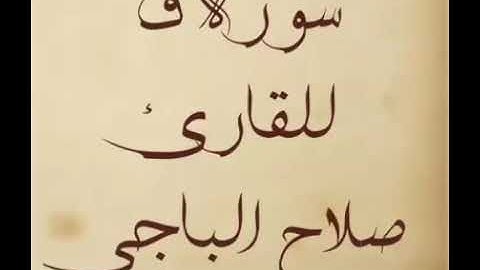 سورة ق
للقارئ
صلاح الباجي